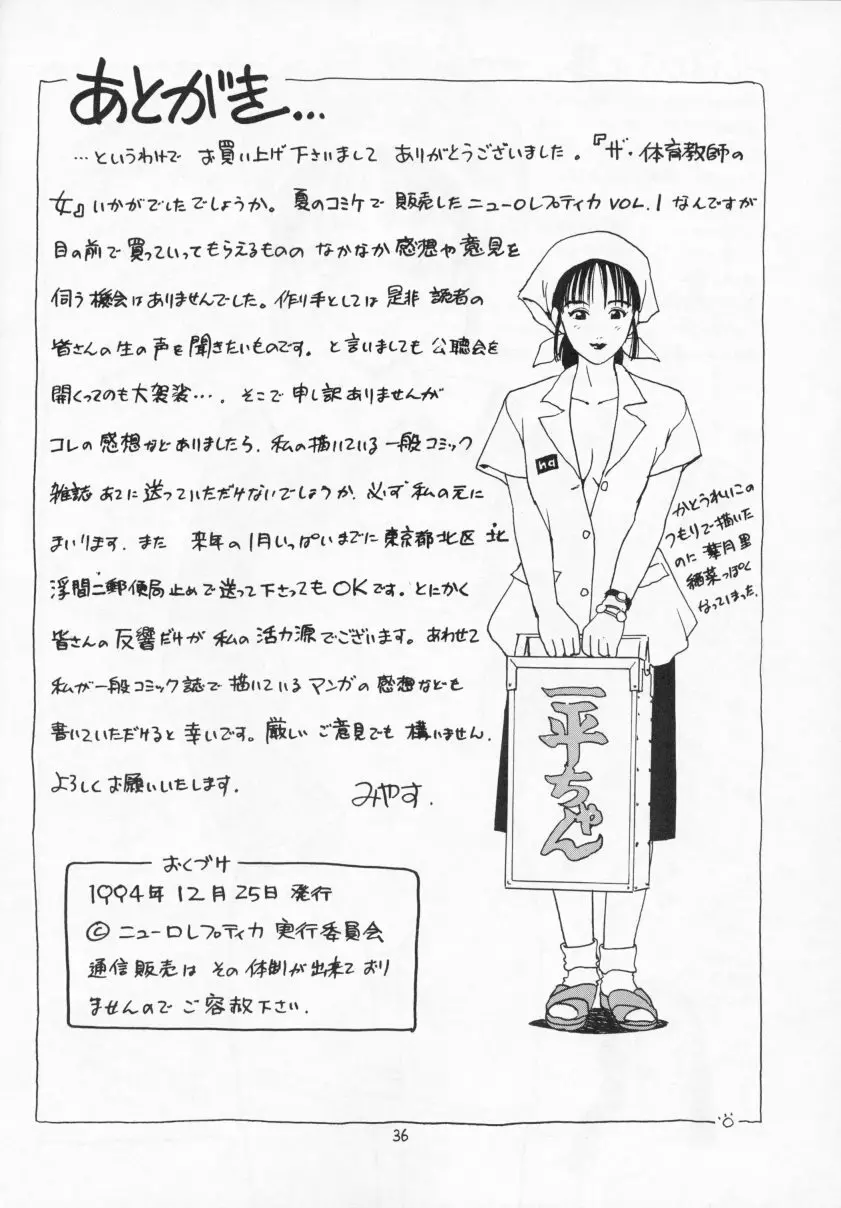 あとがき…
…というわけで お買い上げ下さいまして ありがとうございました。『ザ・体育教師の
女』いかがでしたでしょうか。夏のコミケで 販売したニューロレプティカ VOL.1 なんですが
目の前で買っていってもらえるものの なかなか感想や意見を
伺う機会はありませんでした。作り手としては是非 読者の
皆さんの生の声を聞きたいものです。と言いましても 公聴会を
開くってのも大袈裟…。そこで申し訳ありませんが
コレの感想などありましたら、私の描いている一般コミック
雑誌あてに送っていただけないでしょうか。必ず私の元に
まいります。また 来年の1月いっぱいまでに東京都北区 北
浮間二郵便局止めで送って下さってもOKです。とにかく
皆さんの反響だけが私の活力源でございます。あわせて
私が一般コミック誌で描いているマンガの感想なども
書いていただけると幸いです。厳しいご意見でも構いません。
よろしくお願いいたします。
みやす.
かとうれいこの
つもりで描いた
のに葉月里
緒菜っぽく
なってしまった.
na
一平ちゃん
おくづけ
1994年12月25日発行
© ニューロレプティカ 実行委員会
通信販売は その体制が出来ており
ませんので ご容赦下さい.
36